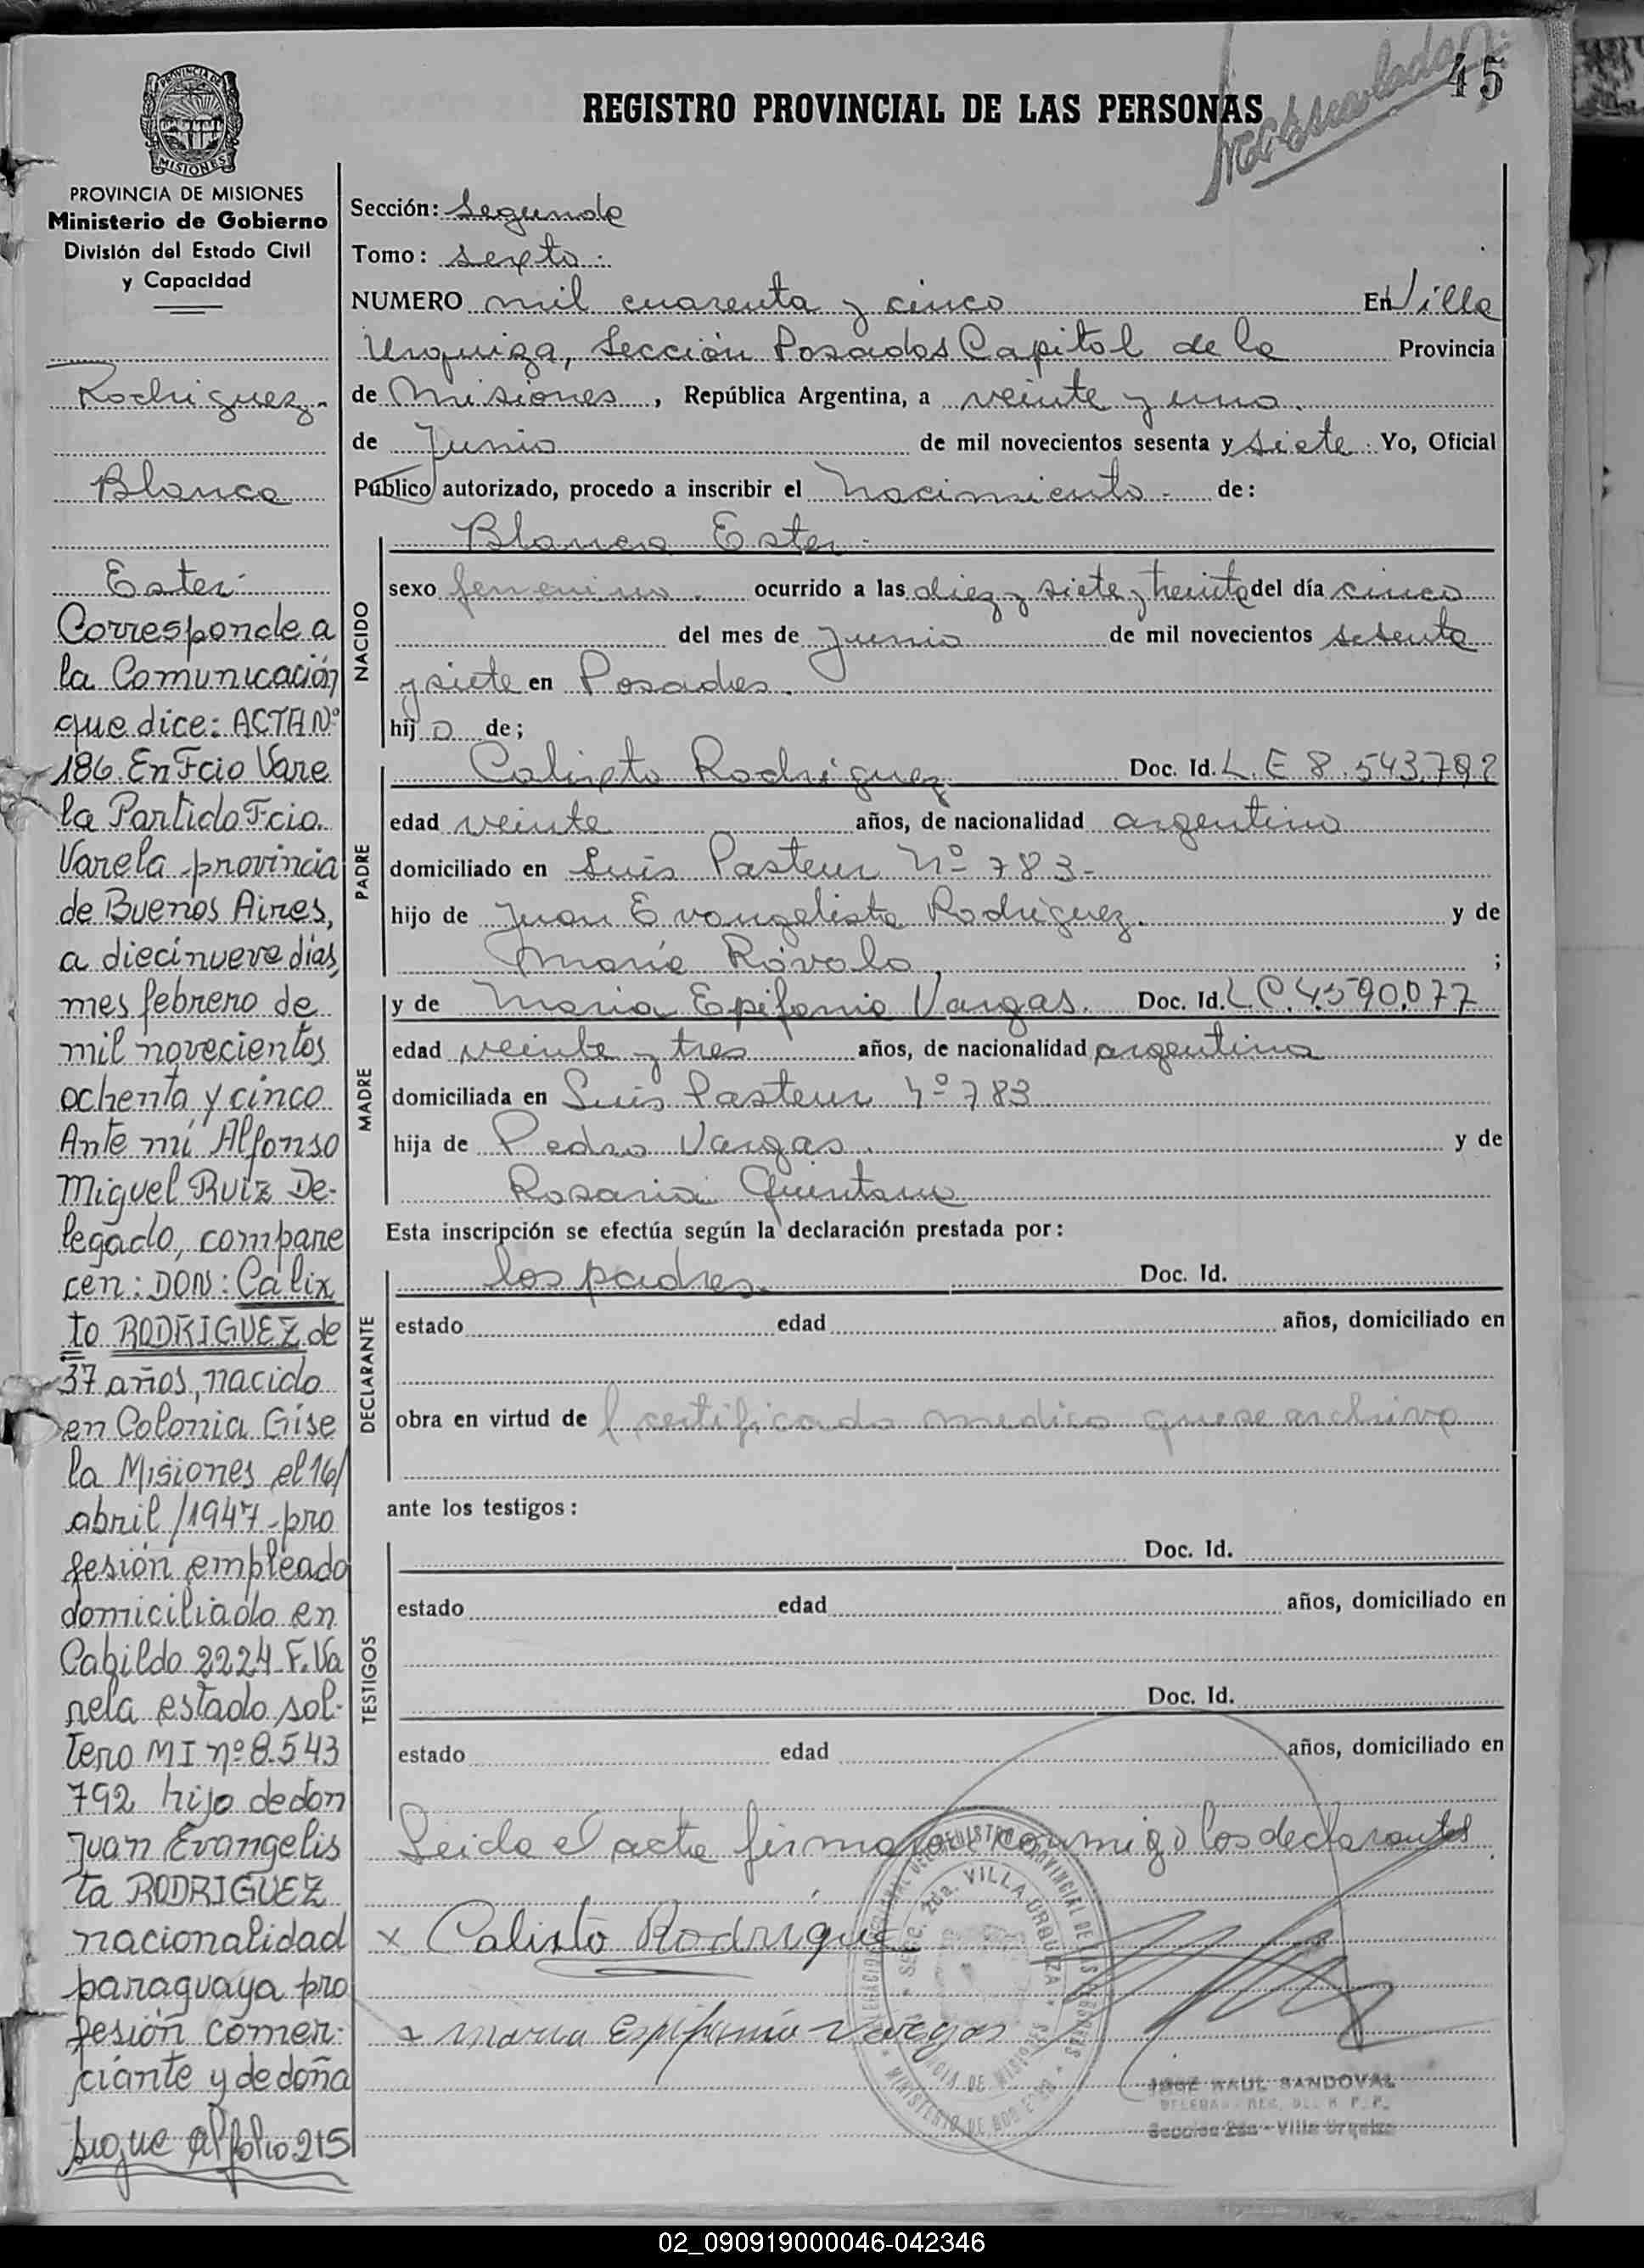 45
REGISTRO PROVINCIAL DE LAS PERSONAS
PROVINCIA DE MISIONES
Ministerio de Gobierno
División del Estado Civil
y Capacidad
Rodriguez.
Blanca
Ester
Corresponde a
la Comunicación
que dice: ACTA Nº
186 En Fcio Vare
la Partido Fcio.
Varela provincia
de Buenos Aires,
a diecinueve días,
mes febrero de
mil novecientos
ochenta y cinco
Ante mí Alfonso
Miguel Ruiz De-
legado, compare
cen: DON: Calix
to RODRIGUEZ de
37 años, nacido
en Colonia Gise
la Misiones el 16/
abril/1947-pro
fesión empleado
domiciliado en
Cabildo 2224 F. Va
rela estado sol-
tero MI nº 8.543
792 hijo de don
Juan Evangelis
ta RODRIGUEZ
nacionalidad
paraguaya pro
fesión comer-
ciante y de doña
sigue al folio 215
Sección: Segunda
Tomo: sexto.
NUMERO mil cuarenta y cinco En Villa
Urquiza, Sección Posadas Capital de la Provincia
de Misiones, República Argentina, a veinte y uno.
de Junio de mil novecientos sesenta y siete. Yo, Oficial
Público autorizado, procedo a inscribir el nacimiento. de:
Blanca Ester.
NACIDO
sexo femenino. ocurrido a las diez y siete y treinta del día cinco
del mes de Junio de mil novecientos sesenta
y siete en Posadas.
hij a de;
PADRE
Calixto Rodriguez Doc. Id. L.E 8.543.792
edad veinte años, de nacionalidad argentino
domiciliado en Luis Pasteur Nº 783-
hijo de Juan Evangelista Rodriguez. y de
María Róvalo, ;
MADRE
y de Maria Epifania Vargas. Doc. Id. L.C.4.590.077
edad veinte y tres años, de nacionalidad argentina
domiciliada en Luis Pasteur Nº 783
hija de Pedro Vargas. y de
Rosaria Quintana
Esta inscripción se efectúa según la declaración prestada por:
DECLARANTE
los padres. Doc. Id.
estado edad años, domiciliado en
obra en virtud de l certificado medico que se archiva
ante los testigos:
TESTIGOS
Doc. Id.
estado edad años, domiciliado en
Doc. Id.
estado edad años, domiciliado en
Leida el acta firman conmigo los declarantes
x Calixto Rodrigue
x Maria Epifania Vargas
SECC. 2da. VILLA URQUIZA
JOSE RAUL SANDOVAL
Seccion 2da - Villa Urquiza
02_090919000046-042346